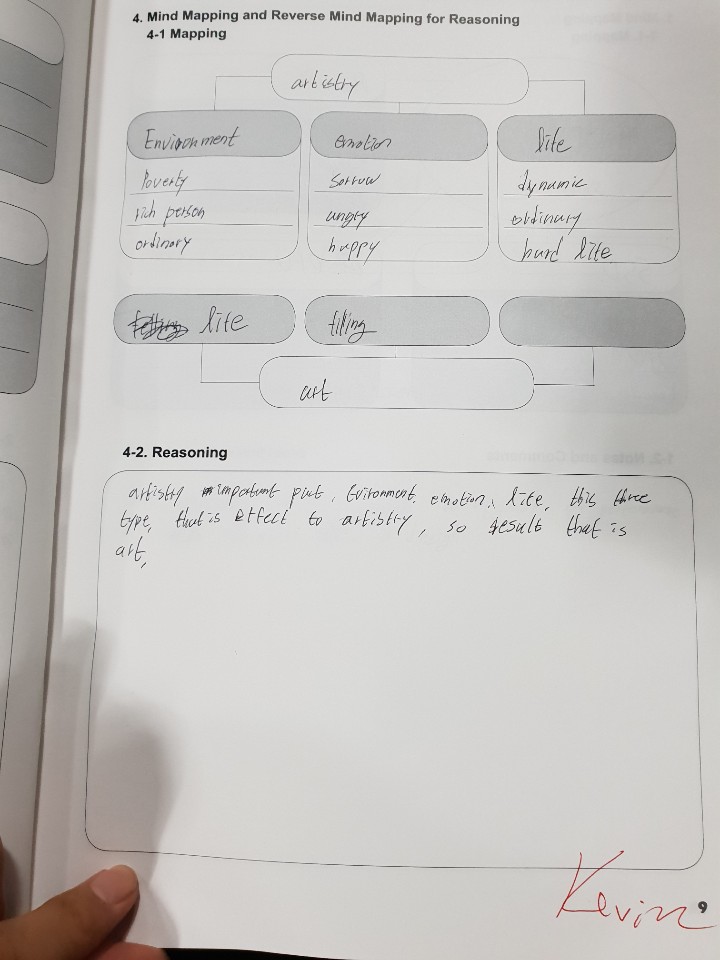 4. Mind Mapping and Reverse Mind Mapping for Reasoning
4-1 Mapping
artistry
Environment
emotion
life
Poverty
sorrow
dynamic
rich person
angry
ordinary
ordinary
happy
hard life
life
filling
art
4-2. Reasoning
artistry important part, Environment, emotion, life, this three
type, that is effect to artistry, so result that is
art,
Kevin
9